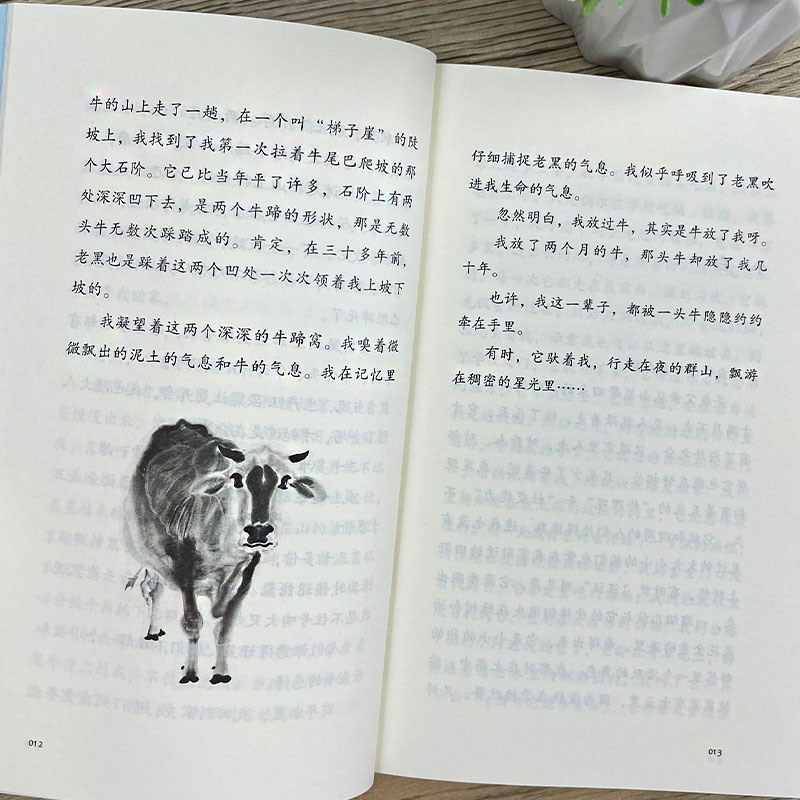 牛的山上走了一趟，在一个叫“梯子崖”的陡
坡上，我找到了我第一次拉着牛尾巴爬坡的那
个大石阶。它已比当年平了许多，石阶上有两
处深深凹下去，是两个牛蹄的形状，那是无数
头牛无数次踩踏成的。肯定，在三十多年前，
老黑也是踩着这两个凹处一次次领着我上坡下
坡的。
我凝望着这两个深深的牛蹄窝。我嗅着微
微飘出的泥土的气息和牛的气息。我在记忆里
012
仔细捕捉老黑的气息。我似乎呼吸到了老黑吹
进我生命的气息。
忽然明白，我放过牛，其实是牛放了我呀。
我放了两个月的牛，那头牛却放了我几
十年。
也许，我这一辈子，都被一头牛隐隐约约
牵在手里。
有时，它驮着我，行走在夜的群山，飘游
在稠密的星光里……
013